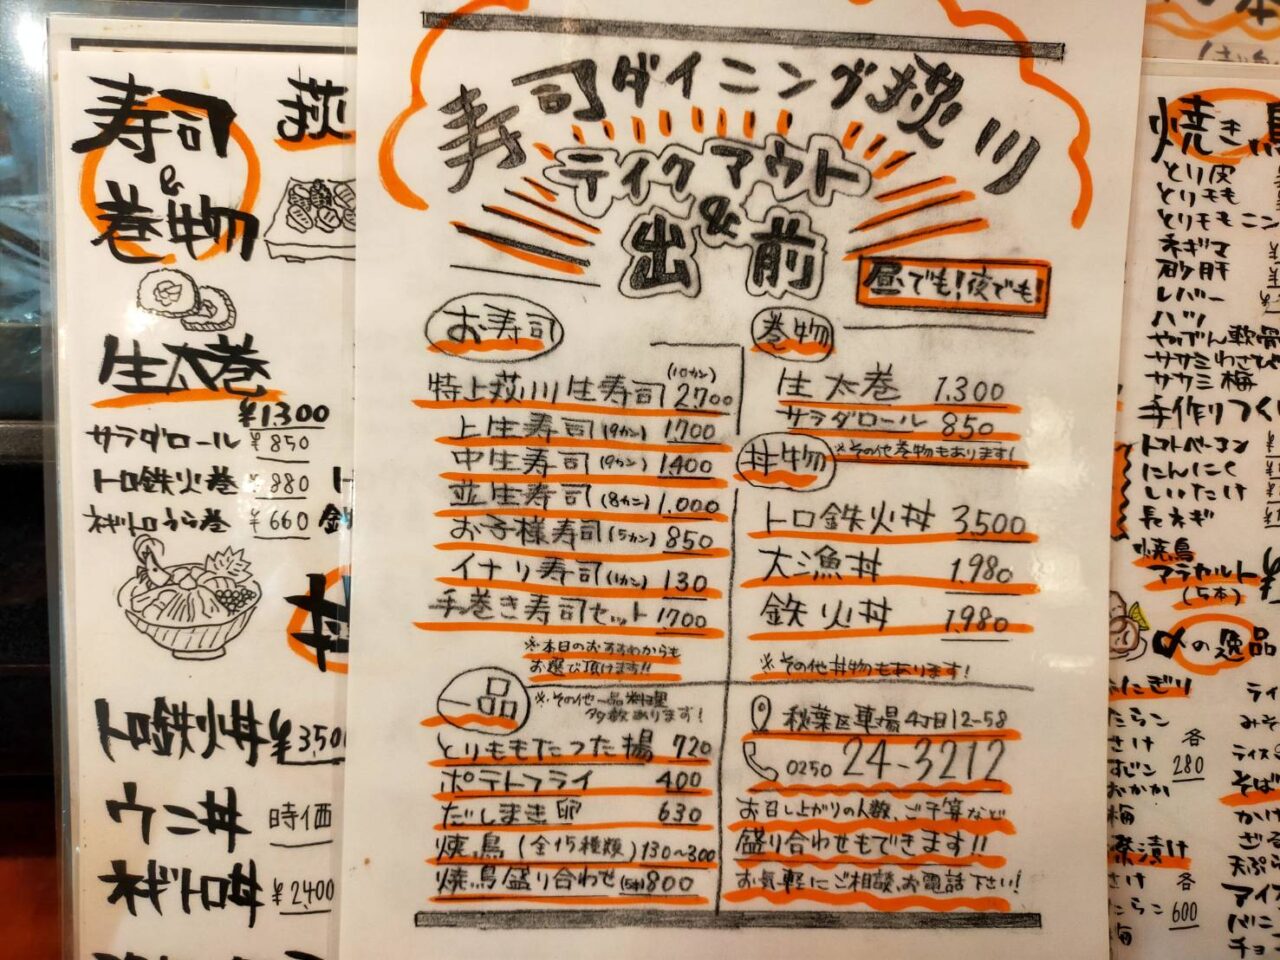 寿司
&
巻物
荻
生太巻
¥1.300
サラダロール ¥850
トロ鉄火巻 ¥880
ネギトロうら巻 ¥660
丼
トロ鉄火丼 ¥3,500
ウニ丼 時価
ネギトロ丼 ¥2,400
寿司ダイニング荻川
テイクアウト
&
出前
昼でも!夜でも!
お寿司
(10カン)
特上荻川生寿司 2,700
上生寿司(9カン) 1,700
中生寿司(9カン) 1,400
並生寿司(8カン) 1,000
お子様寿司(5カン) 850
イナリ寿司(1カン) 130
手巻き寿司セット 1700
※本日のおすすめからも
お選び頂けます!!
一品
※その他一品料理
多数あります!
とりももたつた揚 720
ポテトフライ 400
だしまき卵 630
焼鳥(全15種類) 130~300
焼鳥盛り合わせ(5本) 800
巻物
生太巻 1,300
サラダロール 850
※その他巻物もあります!
丼物
トロ鉄火丼 3,500
大漁丼 1,980
鉄火丼 1,980
※その他丼物もあります!
秋葉区車場4丁目12-58
0250 24-3212
お召し上がりの人数、ご予算など
盛り合わせもできます!!
お気軽にご相談、お電話下さい!
焼き鳥
とり皮
とりモモ
とりモモニン
ネギマ
砂肝
レバー
ハツ
やげん軟骨
ササミわさび
ササミ梅
手作りつく
トマトベーコン
にんにく
しいたけ
長ネギ
焼鳥
アラカルト
(5本)
〆の逸品
おにぎり
たらこ
さけ 各
すじこ 280
おかか
梅
茶漬け
さけ 各
たらこ 600
梅
ライ
みそ
ライス
そば
かけ
ざる
天ぷら
アイス
バニ
チョ